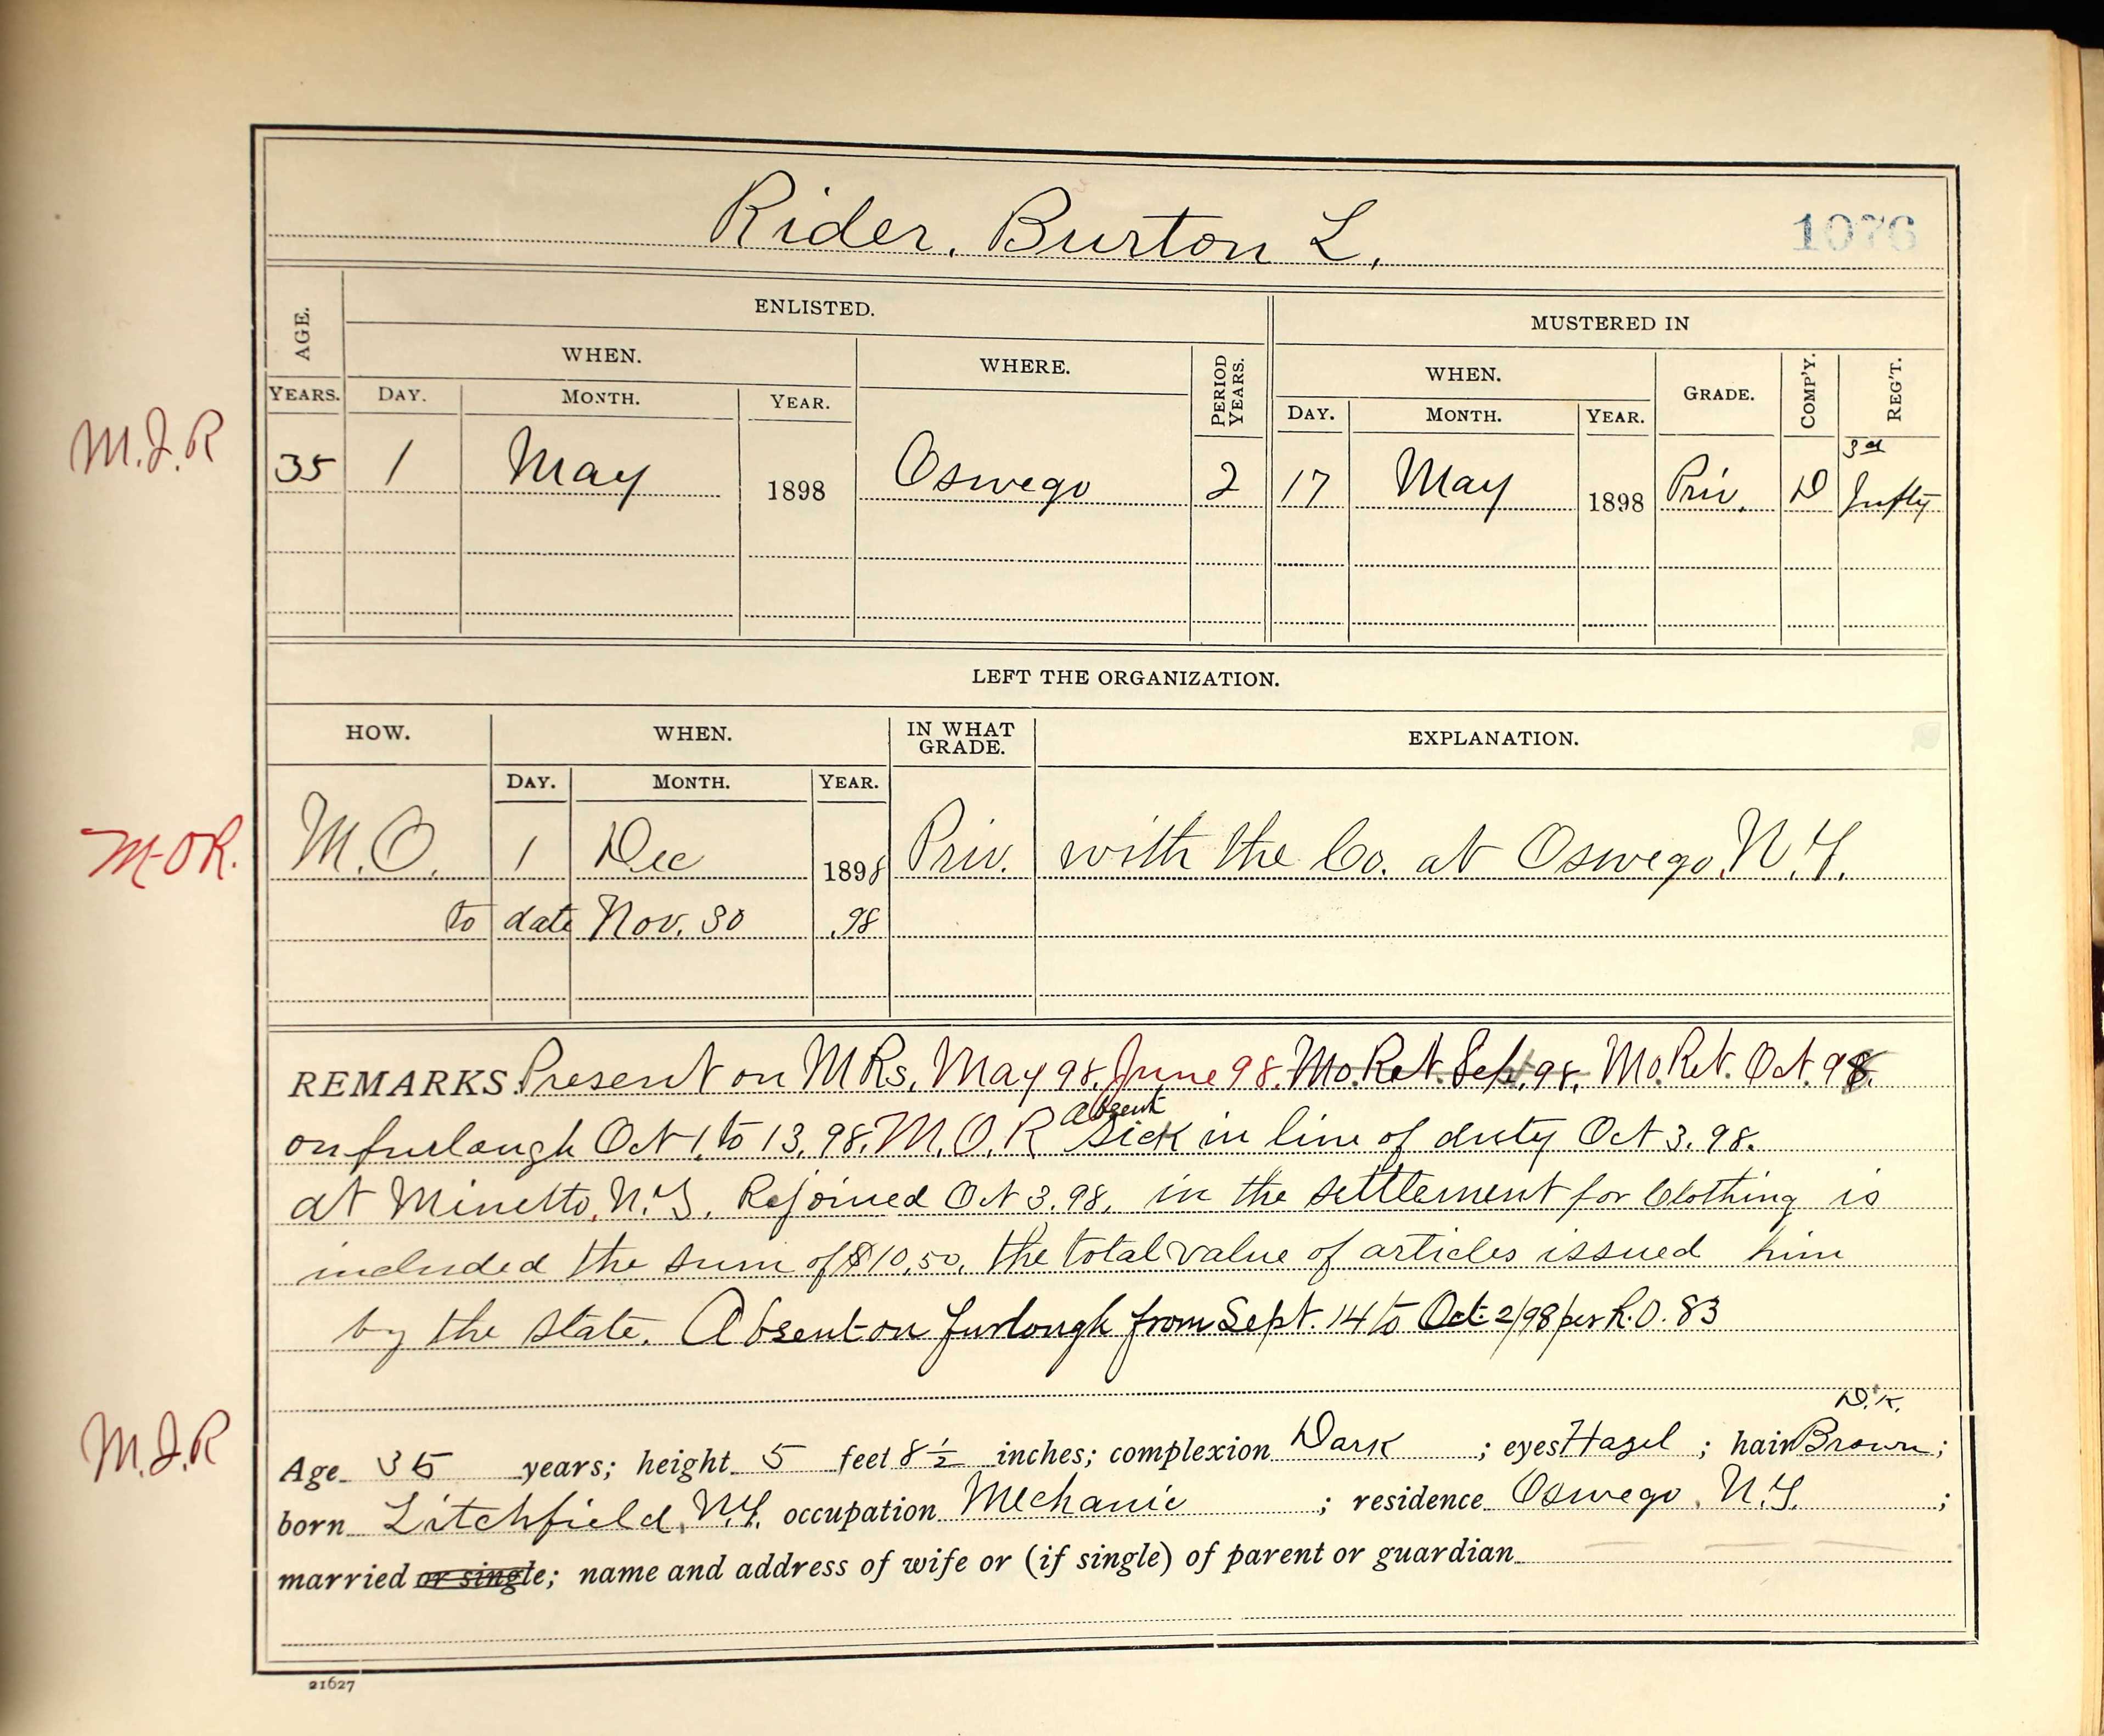 Rider, Burton L.
1076
AGE.
ENLISTED.
MUSTERED IN
WHEN.
WHERE.
PERIOD YEARS.
WHEN.
GRADE.
COMP'Y.
REG'T.
YEARS.
DAY.
MONTH.
YEAR.
DAY.
MONTH.
YEAR.
M.I.R
35 1 May 1898 Oswego 2 17 May 1898 Priv. D 3rd Infty
LEFT THE ORGANIZATION.
HOW.
WHEN.
IN WHAT GRADE.
EXPLANATION.
DAY.
MONTH.
YEAR.
M-OR.
M.O. 1 Dec 1898 Priv. with the Co. at Oswego, N.Y.
to date Nov. 30 .98
REMARKS. Present on MRs, May 98. June 98. Mo. Ret. Sept. 98. Mo. Ret. Oct. 98.
on furlough Oct 1, to 13, 98. M.O.R absent sick in line of duty Oct 3. 98.
at Minetto, N.Y. Rejoined Oct 3. 98. in the settlement for Clothing is
included the sum of $10.50, the total value of articles issued him
by the state. Absent on furlough from Sept. 14 to Oct 2/98 per R.O. 83
D.K.
M.I.R
Age 35 years; height 5 feet 8 ½ inches; complexion Dark ; eyes Hazel ; hair Brown;
born Litchfield, N.Y. occupation Mechanic ; residence Oswego, N.Y. ;
married or single; name and address of wife or (if single) of parent or guardian
21627